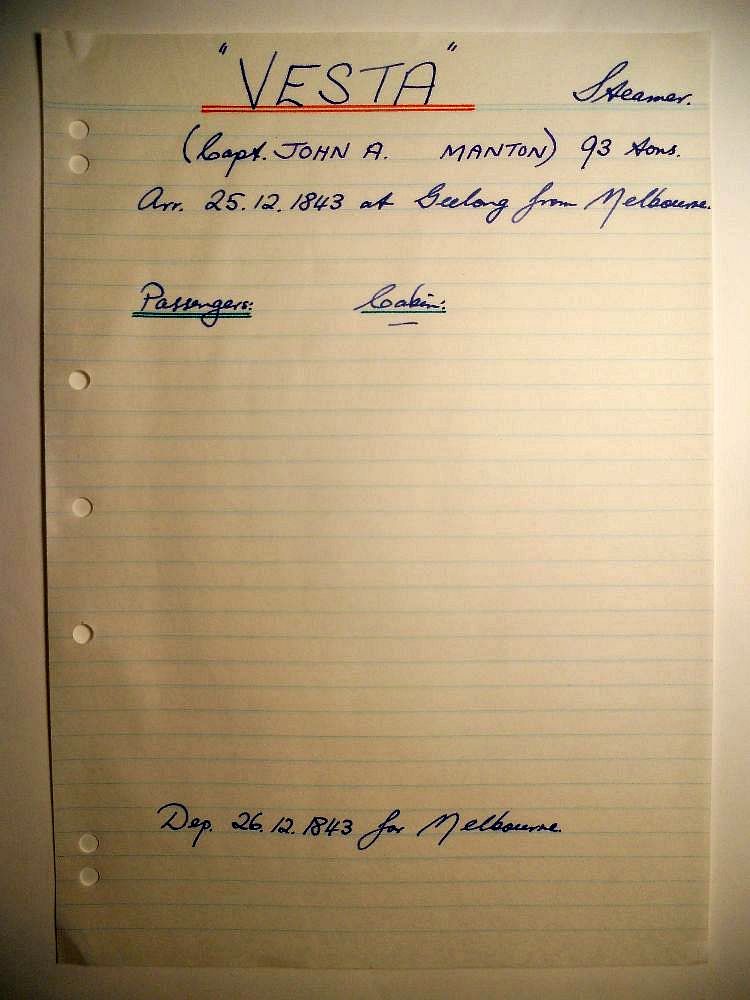 "VESTA" Steamer.
(Capt. JOHN A. MANTON) 93 tons.
Arr. 25.12.1843 at Geelong from Melbourne.
Passengers: Cabin:
—
Dep. 26.12.1843 for Melbourne.